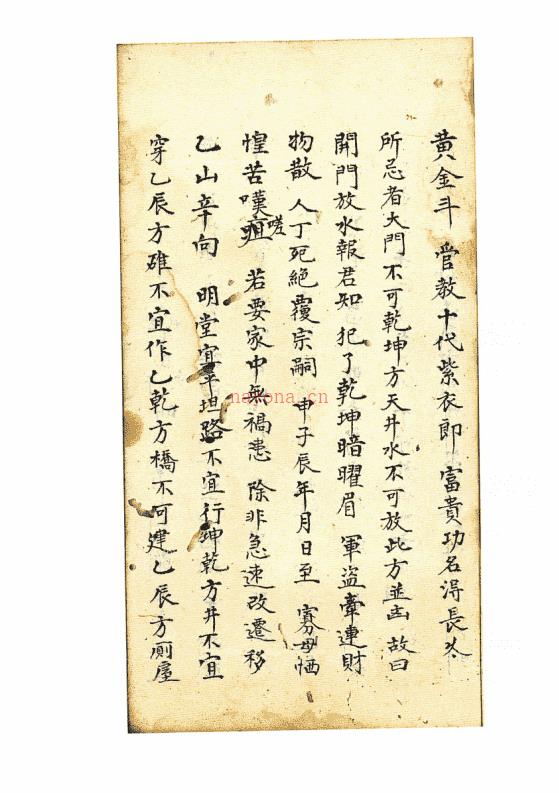 黄金斗 管教十代紫衣郎 富貴功名淂長久
所忌者大門不可乾坤方天井水不可放此方並凶 故曰
開門放水報君知 犯了乾坤暗曜眉 軍盜牽連財
物散 人丁死絶覆宗嗣 申子辰年月日至 寡母恓
惶苦嘆疽嗟 若要家中無禍患 除非急速改遷移
乙山辛向 明堂宜平坦路不宜行坤乾方井不宜
穿乙辰方碓不宜作乙乾方橋不可建乙辰方廁屋
nayona.cn